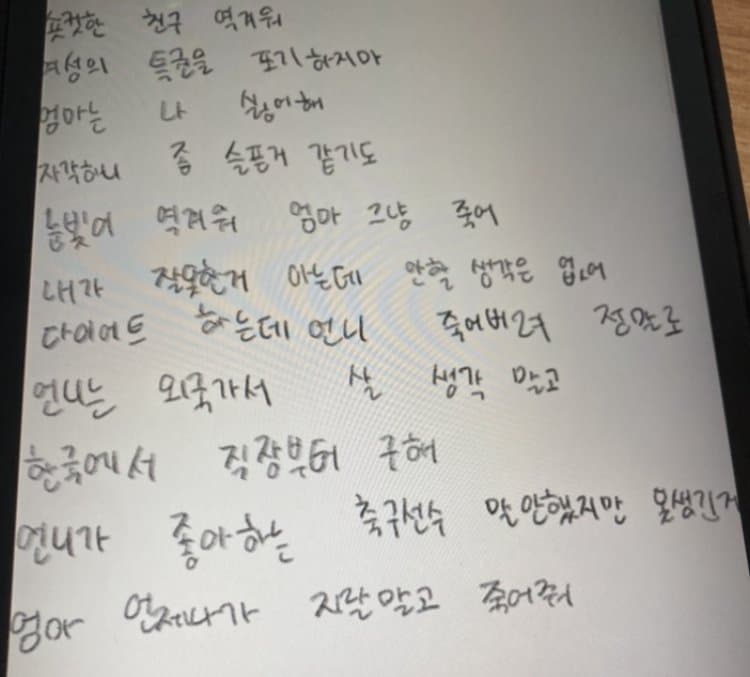 숏컷한 친구 역겨워
여성의 특권을 포기하지마
엄마는 나 싫어해
자각하니 좀 슬픈거 같기도
눈빛이 역겨워 엄마 그냥 죽어
내가 잘못한거 아는데 안할 생각은 없어
다이어트 하는데 언니 죽어버려 정말로
언니는 외국가서 살 생각 말고
한국에서 직장부터 구해
언니가 좋아하는 축구선수 말안했지만 못생긴거
엄마 언제나가 지랄말고 죽어줘